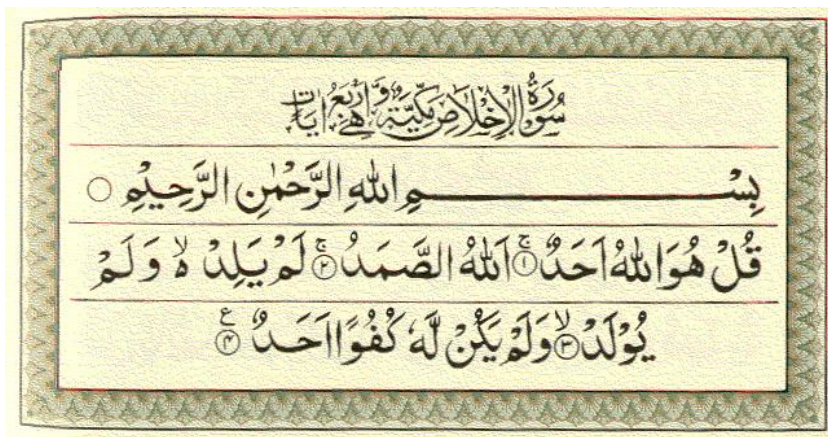 سُورَةُ الْاِخْلَاصِ مَكِّيَّةٌ وَّهِيَ اَرْبَعُ اٰيَاتٍ
بِسْمِ اللهِ الرَّحْمٰنِ الرَّحِيْمِ ○
قُلْ هُوَ اللهُ اَحَدٌ ۚ﴿۱﴾ اَللهُ الصَّمَدُ ۚ﴿۲﴾ لَمْ يَلِدْ ۙ وَلَمْ
يُوْلَدْ ۙ﴿۳﴾ وَلَمْ يَكُنْ لَّهٗ كُفُوًا اَحَدٌ ۧ﴿۴﴾